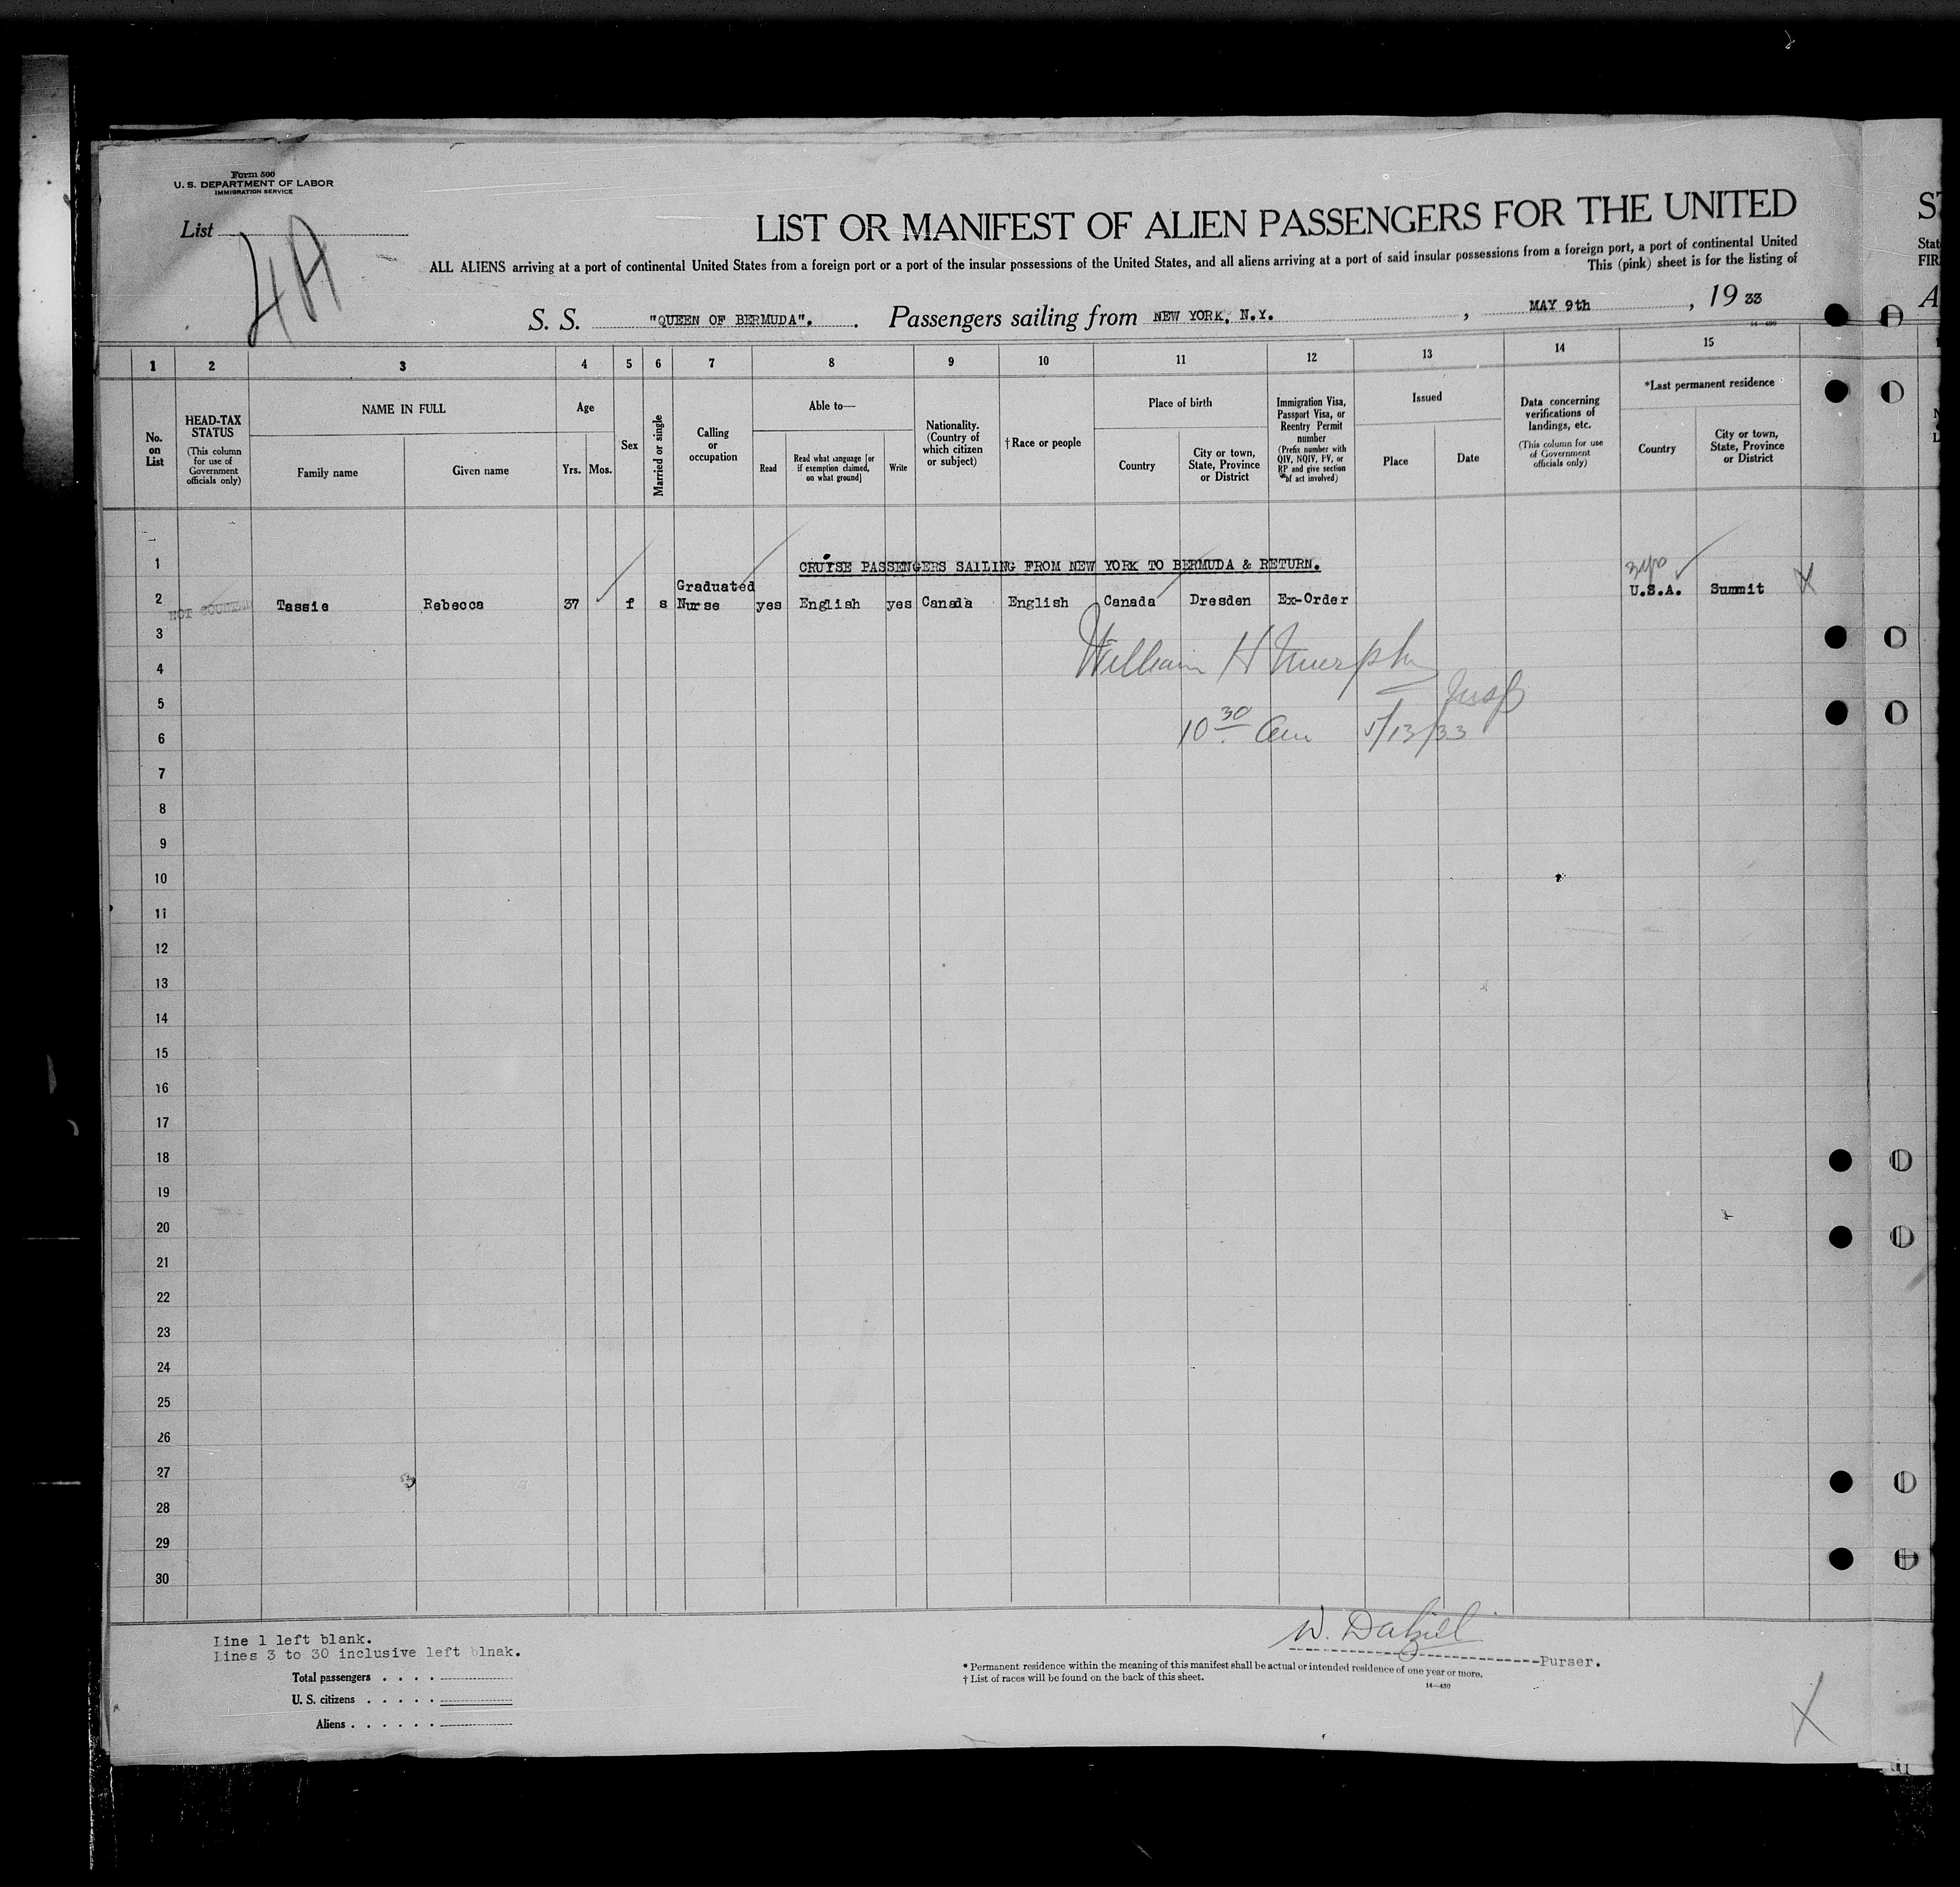 Form 500
U. S. DEPARTMENT OF LABOR
IMMIGRATION SERVICE
List 4A
LIST OR MANIFEST OF ALIEN PASSENGERS FOR THE UNITED
ALL ALIENS arriving at a port of continental United States from a foreign port or a port of the insular possessions of the United States, and all aliens arriving at a port of said insular possessions from a foreign port, a port of continental United
This (pink) sheet is for the listing of
S. S. "QUEEN OF BERMUDA". Passengers sailing from NEW YORK, N.Y. , MAY 9th , 19 33
14—430
1 2 3 4 5 6 7 8 9 10 11 12 13 14 15
No. on List
HEAD-TAX STATUS
(This column for use of Government officials only)
NAME IN FULL
Family name
Given name
Age
Yrs. Mos.
Sex
Married or single
Calling or occupation
Able to—
Read
Read what language [or if exemption claimed, on what ground]
Write
Nationality. (Country of which citizen or subject)
†Race or people
Place of birth
Country
City or town, State, Province or District
Immigration Visa, Passport Visa, or Reentry Permit number
(Prefix number with QIV, NQIV, PV, or RP and give section of act involved)
Issued
Place
Date
Data concerning verifications of landings, etc.
(This column for use of Government officials only)
*Last permanent residence
Country
City or town, State, Province or District
1 CRUISE PASSENGERS SAILING FROM NEW YORK TO BERMUDA & RETURN.
2 Tassie Rebecca 37 f s Graduated Nurse yes English yes Canada English Canada Dresden Ex-Order U.S.A. Summit
3
4 William H Murphy
5 Insp
6 10 30 am 5/13/33
7
8
9
10
11
12
13
14
15
16
17
18
19
20
21
22
23
24
25
26
27
28
29
30
Line 1 left blank.
Lines 3 to 30 inclusive left blnak.
Total passengers . . . .
U. S. citizens . . . . .
Aliens . . . . . .
W. Dalziel
Purser.
* Permanent residence within the meaning of this manifest shall be actual or intended residence of one year or more.
† List of races will be found on the back of this sheet.
14—430